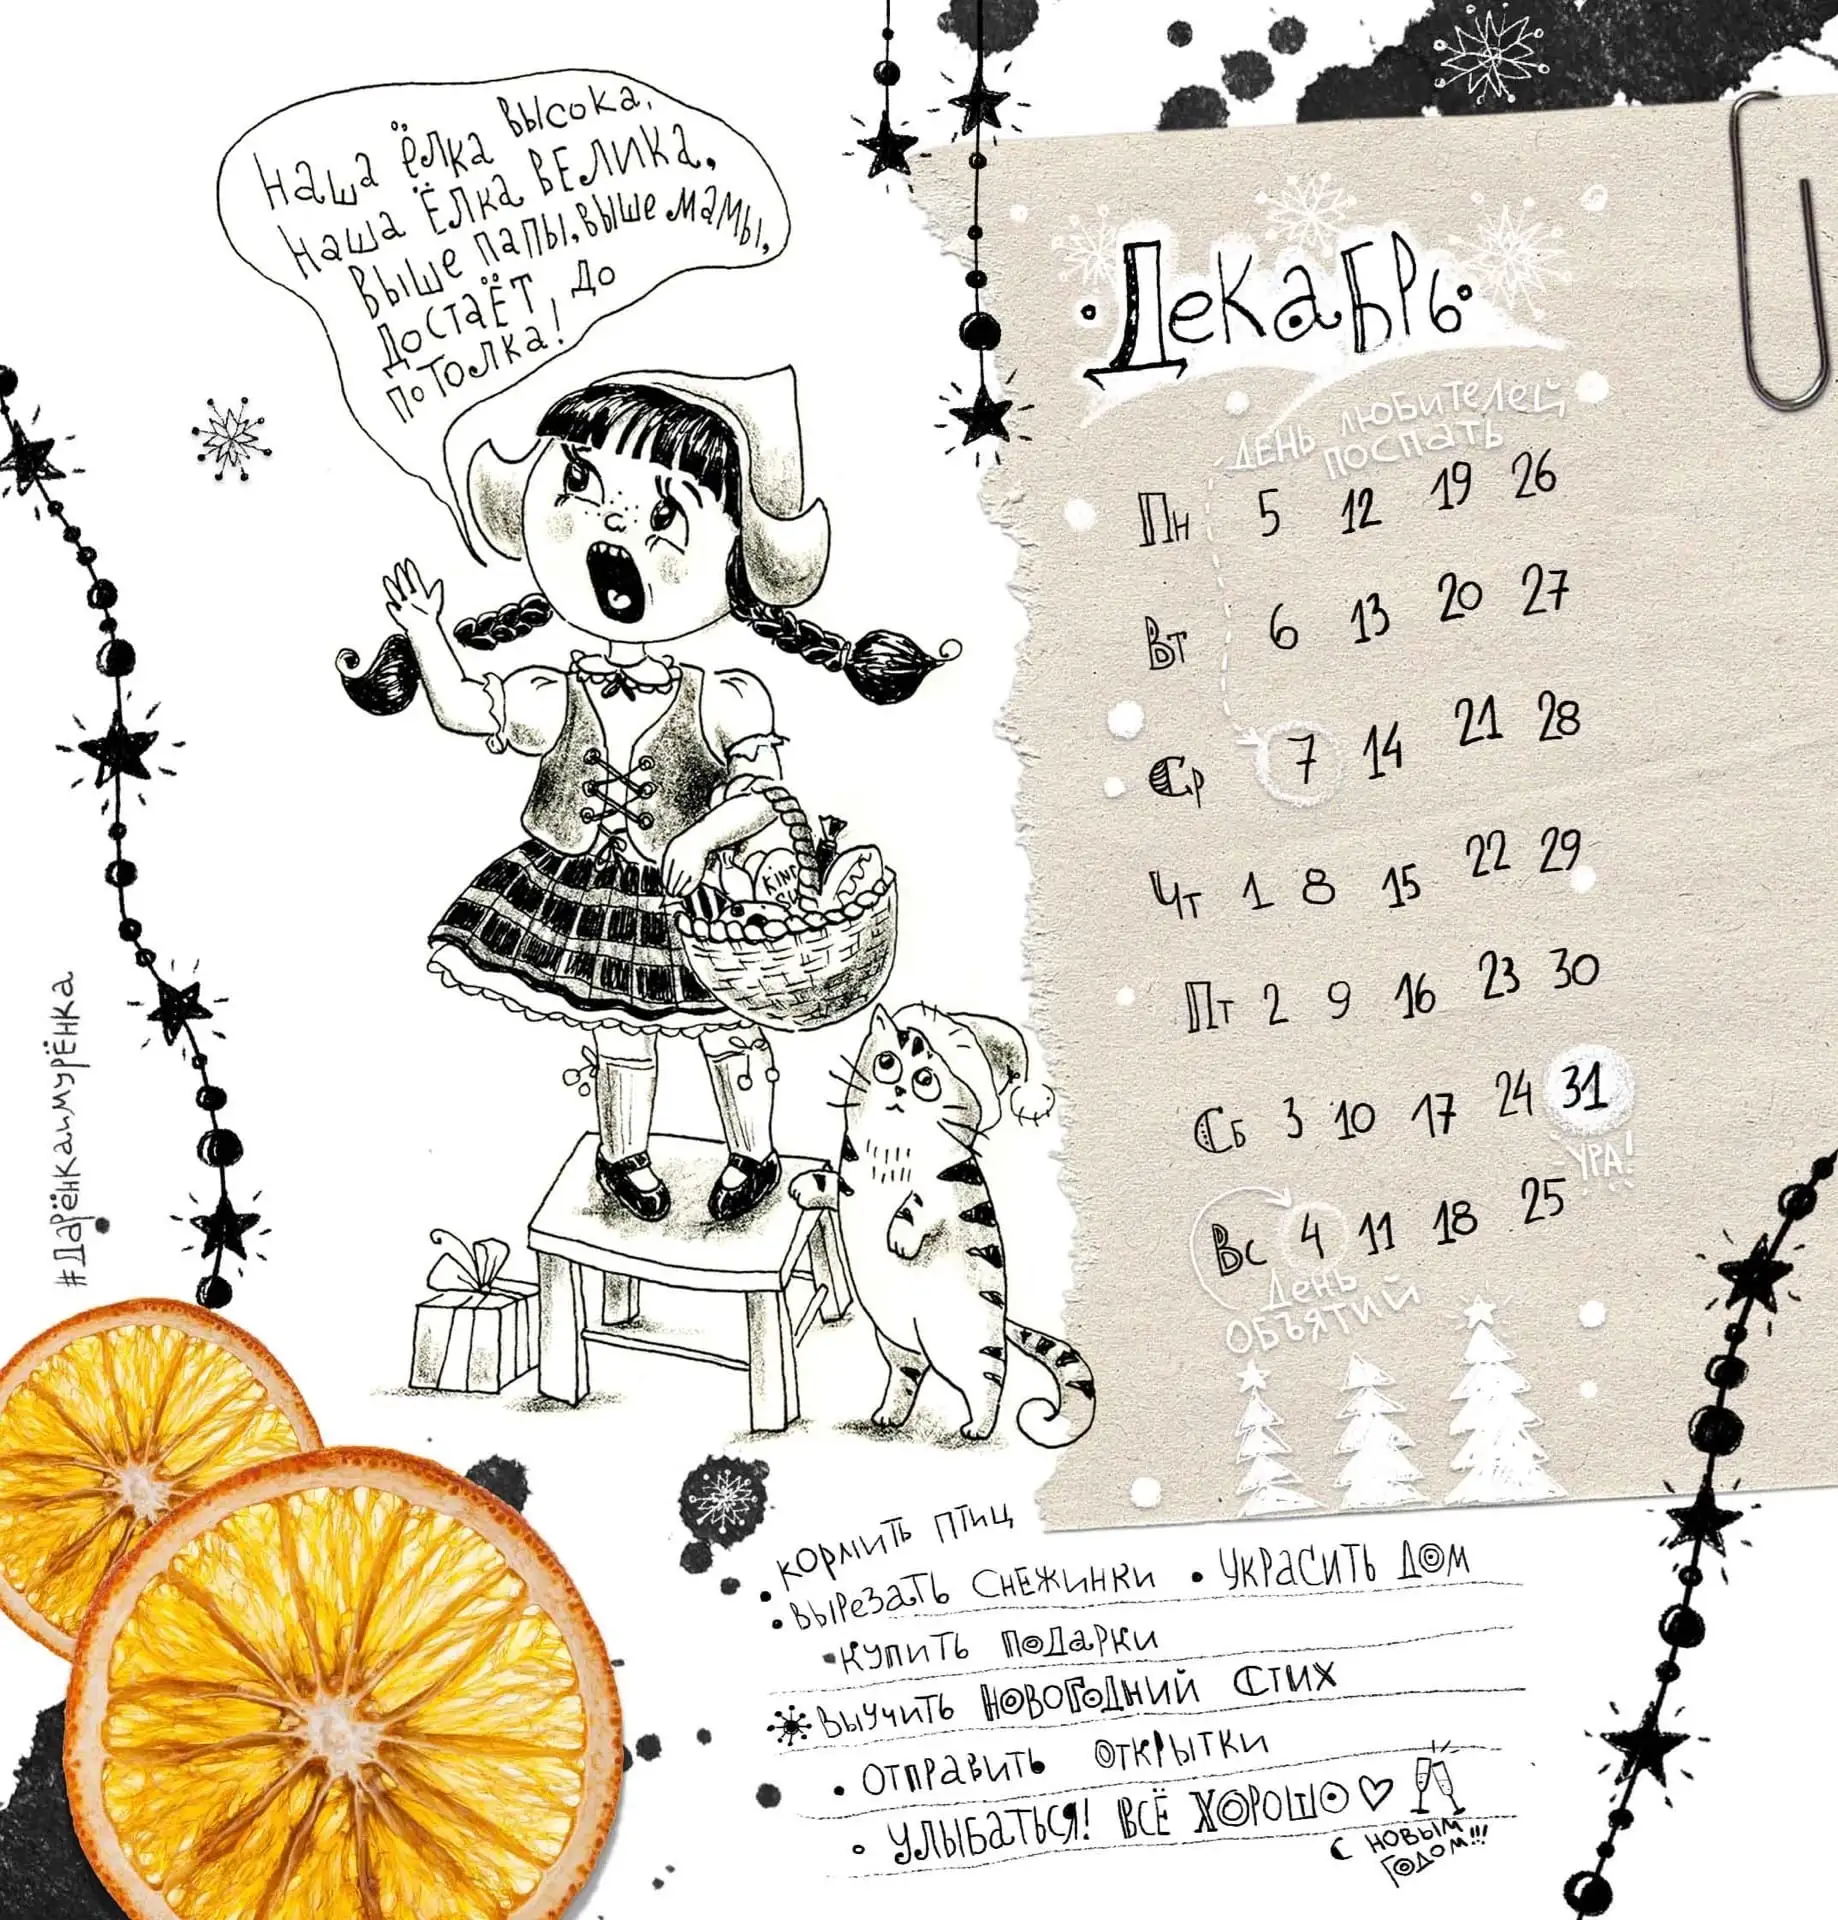 Наша ёлка высока,
Наша ёлка велика,
Выше папы, выше мамы,
Достаёт до
потолка!
#Дарёнкаимурёнка
KIND
Декабрь
День любителей
поспать
Пн 5 12 19 26
Вт 6 13 20 27
Ср 7 14 21 28
Чт 1 8 15 22 29
Пт 2 9 16 23 30
Сб 3 10 17 24 31
УРА!
Вс 4 11 18 25
День
объятий
• кормить птиц
• вырезать снежинки • украсить дом
• купить подарки
выучить новогодний стих
• отправить открытки
• улыбаться! Всё хорошо ♡
С Новым
годом!!!